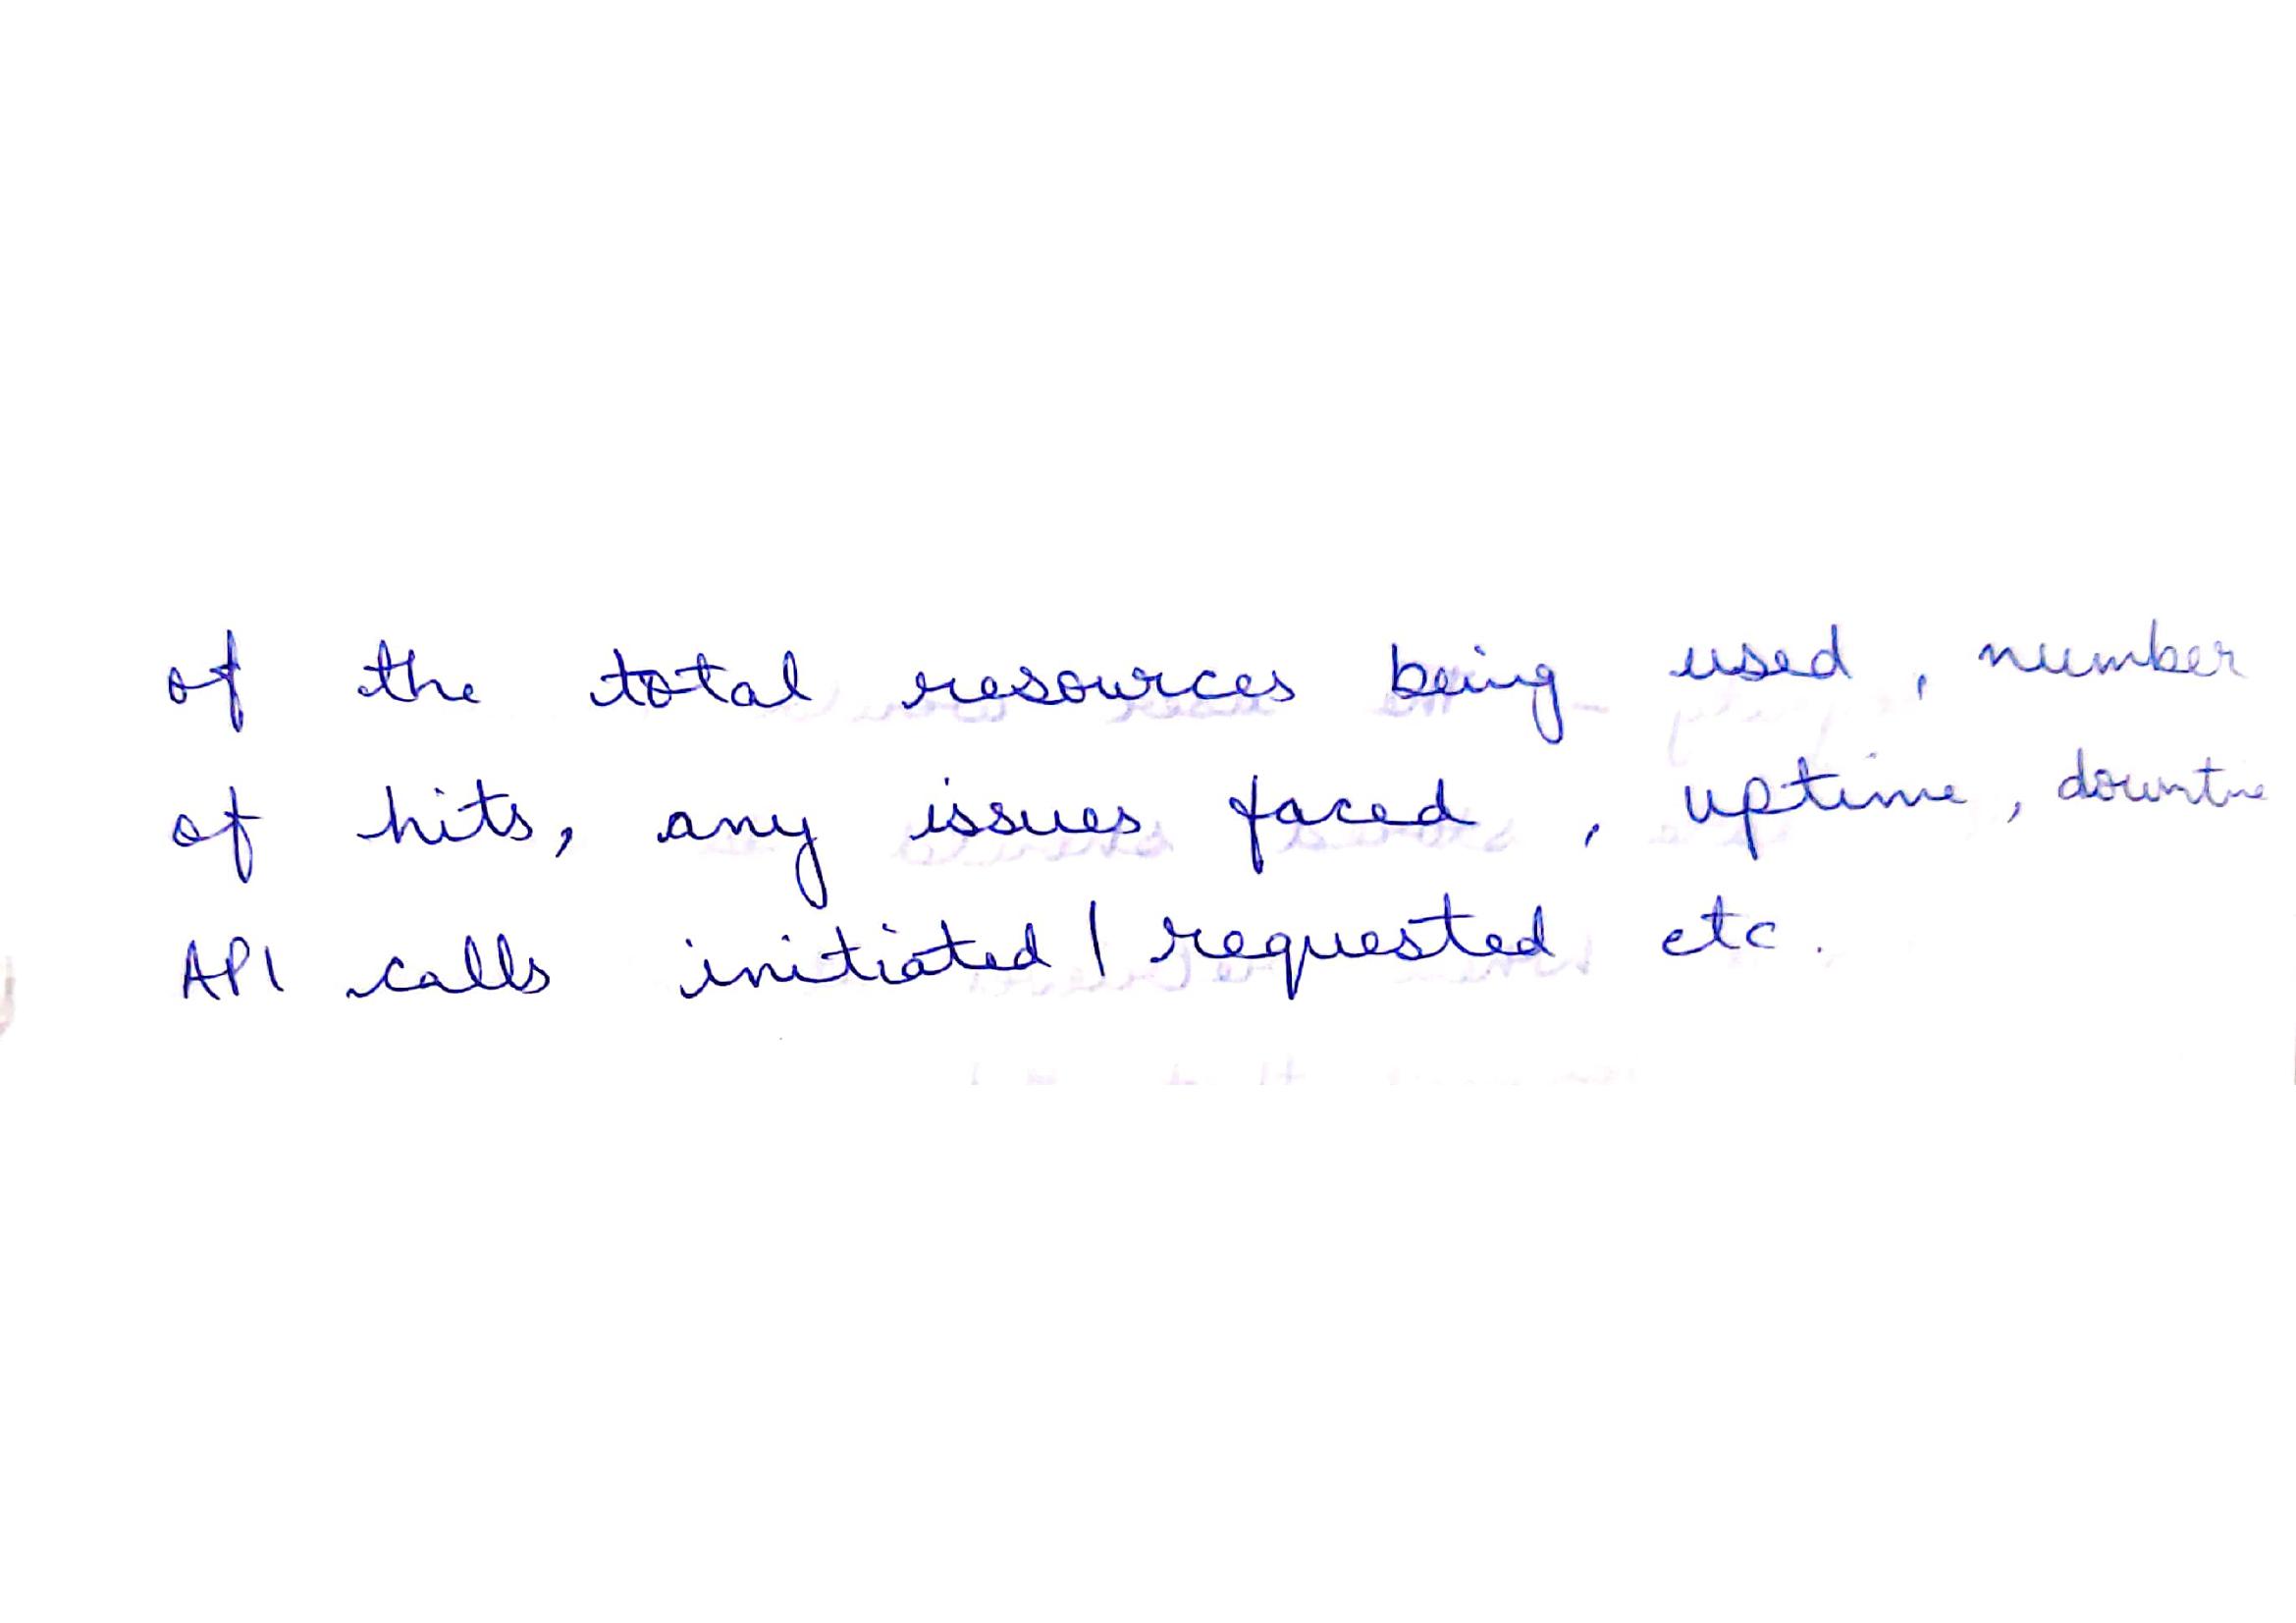 of the total resources being used, number
of hits, any issues faced, uptime, downtime
API calls initiated / requested etc.